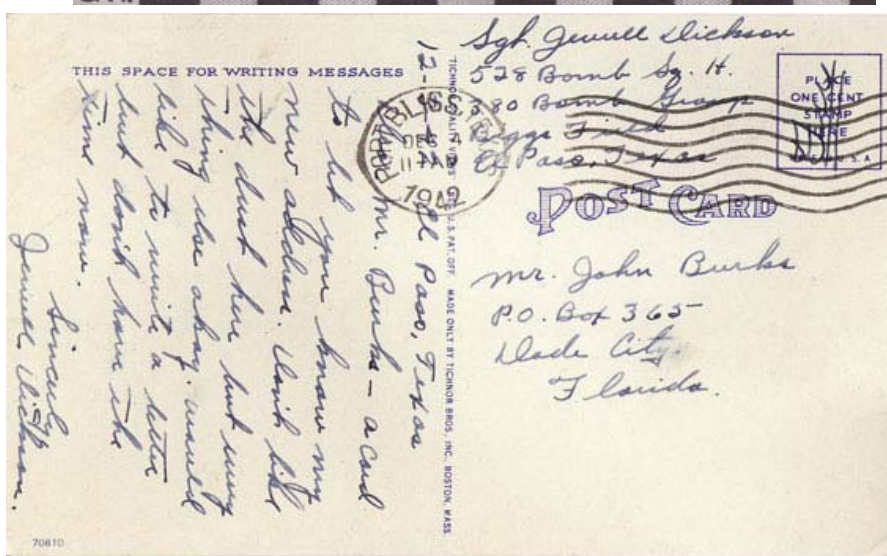 THIS SPACE FOR WRITING MESSAGES
12-
El Paso, Texas
Mr. Burks – a card
to let you know my
new address. Don't like
the dust here but every
thing else okay. Would
like to write a letter
but don't have the
time now.
Sincerely
Jewell Dickson.
70610
TICHNOR QUALITY VIEWS REG. U.S. PAT. OFF. MADE ONLY BY TICHNOR BROS., INC., BOSTON, MASS.
FORT BLISS
DEC 4
11 AM
1942
Sgt. Jewell Dickson
528 Bomb Sq. H.
380 Bomb Group
Biggs Field
El Paso, Texas
PLACE
ONE CENT
STAMP
HERE
U.S.A
POST CARD
Mr. John Burks
P.O. Box 365
Dade City
Florida.